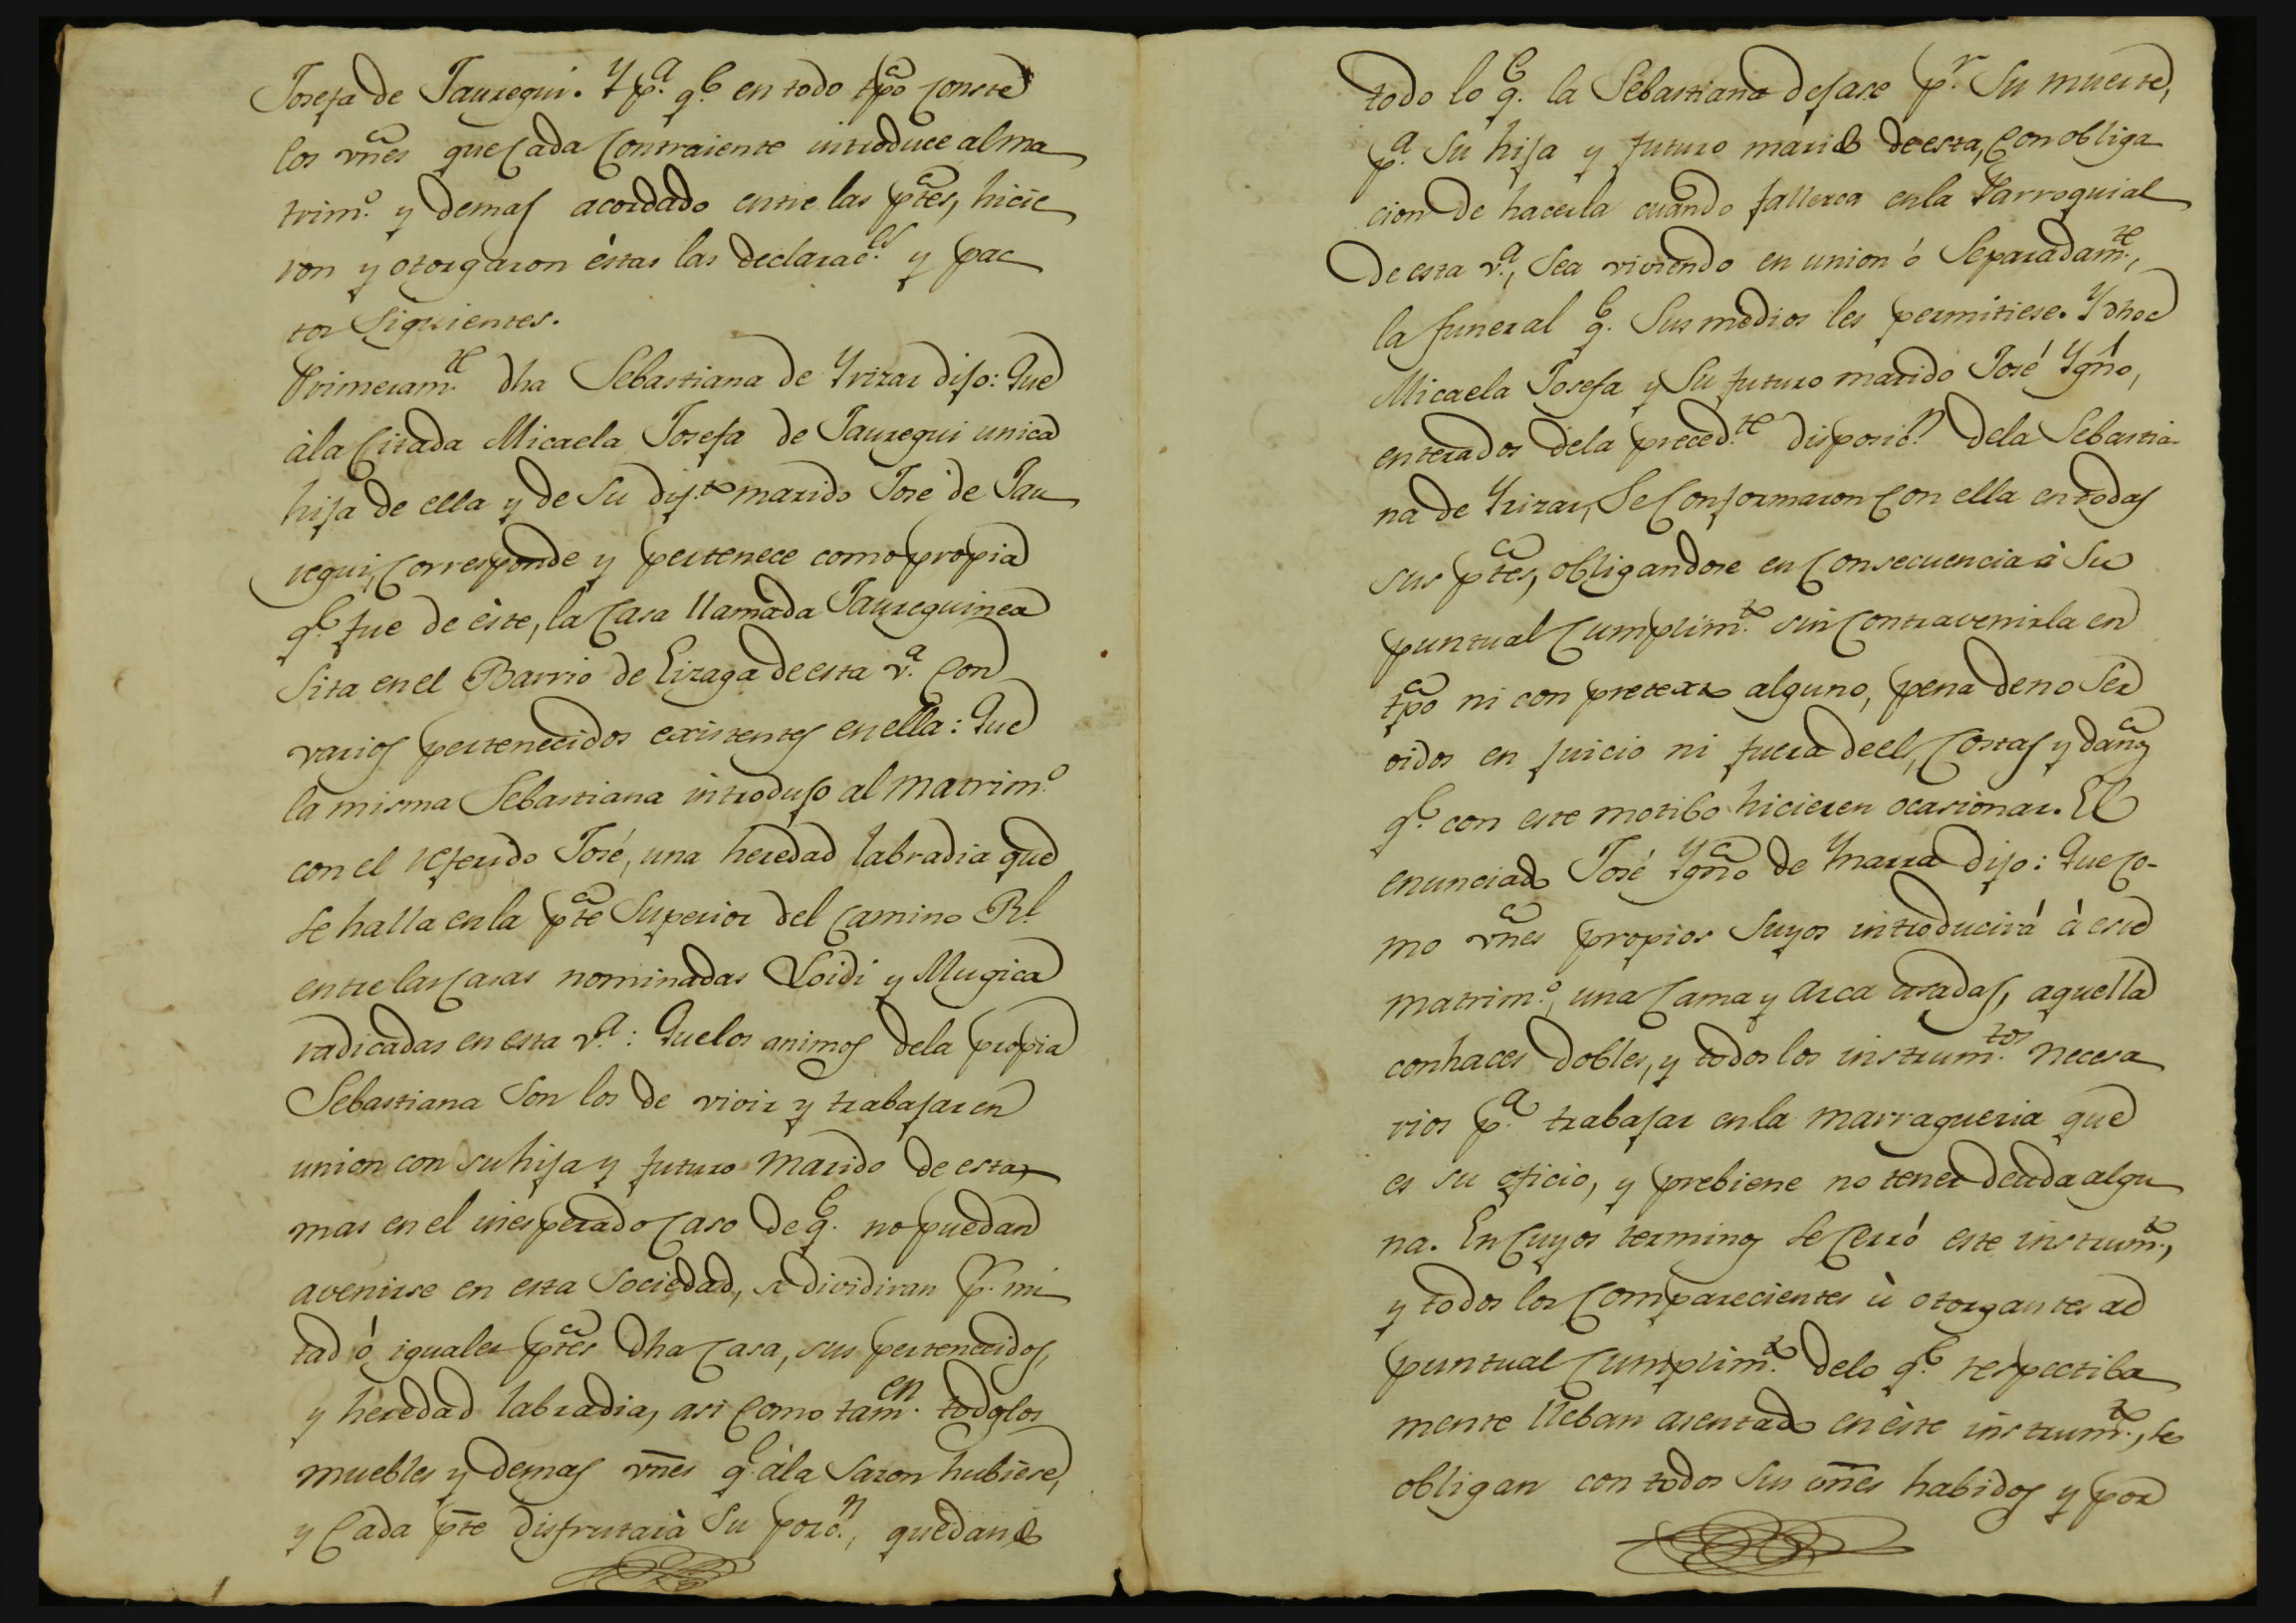 Josefa de Jauregui. Y p.ª q.e en todo tpo conste
los vnes que cada contraiente introduce al ma
trim.º y demas acordado entre las ptes, hicie
ron y otorgaron éstas las declarac.es y pac
tos siguientes.
Primeram.te dha Sebastiana de Yrizar dijo: Que
à la citada Micaela Josefa de Jauregui unica
hija de ella y de su dif.to marido José de Jau
regui, corresponde y pertenece como propia
q.e fue de èste, la casa llamada Jaureguinea
sita en el Barrio de Eizaga de esta v.ª con
varios pertenecidos existentes en ella: Que
la misma Sebastiana introdujo al matrim.º
con el referido José, una heredad labradia que
se halla en la pte superior del camino R.l
entre las casas nominadas Loidi y Mugica
radicadas en esta v.ª: Que los animos dela propia
Sebastiana son los de vivir y trabajar en
union con su hija y futuro marido de esta,
mas en el inesperado caso de q.e no puedan
avenirse en esta sociedad, se dividiran p.r mi
tad ó iguales ptes dha casa, sus pertenecidos,
y heredad labradia, asi como tam.en todos los
muebles y demas vnes q.e àla sazon hubiese,
y cada pte disfrutarà su porc.n, quedando
todo lo q.e la Sebastiana dejase p.r su muerte,
p.ª su hija y futuro marido de esta, con obliga
cion de hacerla cuando fallezca en la Parroquial
de esta v.ª, sea viviendo en union ó separadam.te,
la funeral q.e sus medios les permitiese. Y dhos
Micaela Josefa y su futuro marido José Ygno,
enterados dela preced.te disposic.n dela Sebastia-
na de Yrizar, se conformaron con ella en todas
sus ptes, obligandose en consecuencia à su
puntual cumplim.to sin contravenirla en
tpo ni con pretexto alguno, pena de no ser
oidos en juicio ni fuera de el, costas y daños
q.e con este motibo hicieren ocasionar. El
enunciado José Ygno de Ynarra dijo: Que co-
mo vnes propios suyos introducirá à este
matrim.º, una cama y arca usadas, aquella
con haces dobles, y todos los instrum.tos necesa
rios p.ª trabajar en la marragueria que
es su oficio, y prebiene no tener deuda algu
na. En cuyos terminos se cerró este instrum.to,
y todos los comparecientes ù otorgantes al
puntual cumplim.to delo q.e respectiba
mente lleban asentado en èste instrum.to, se
obligan con todos sus vnes habidos y por